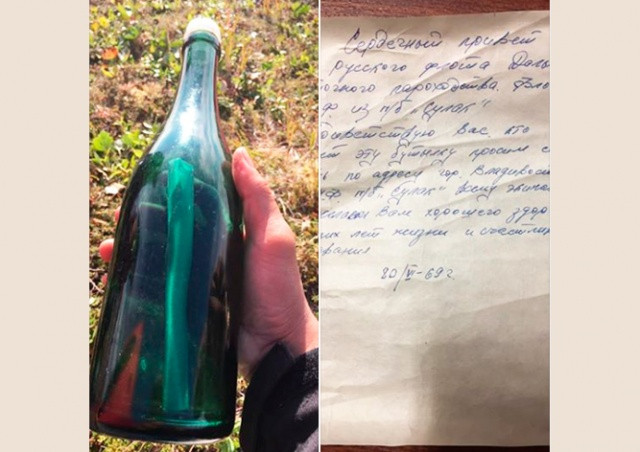 Сердечный привет
русского флота Даль
точного пароходства.
из п/б "Сулак"
Вас, кто
эту бутылку просим
по адресу гор. Владивосто
п/б "Сулак" всему экипа
Вам хорошего здор
лет жизни и счастлив
вания
20/VI-69г.